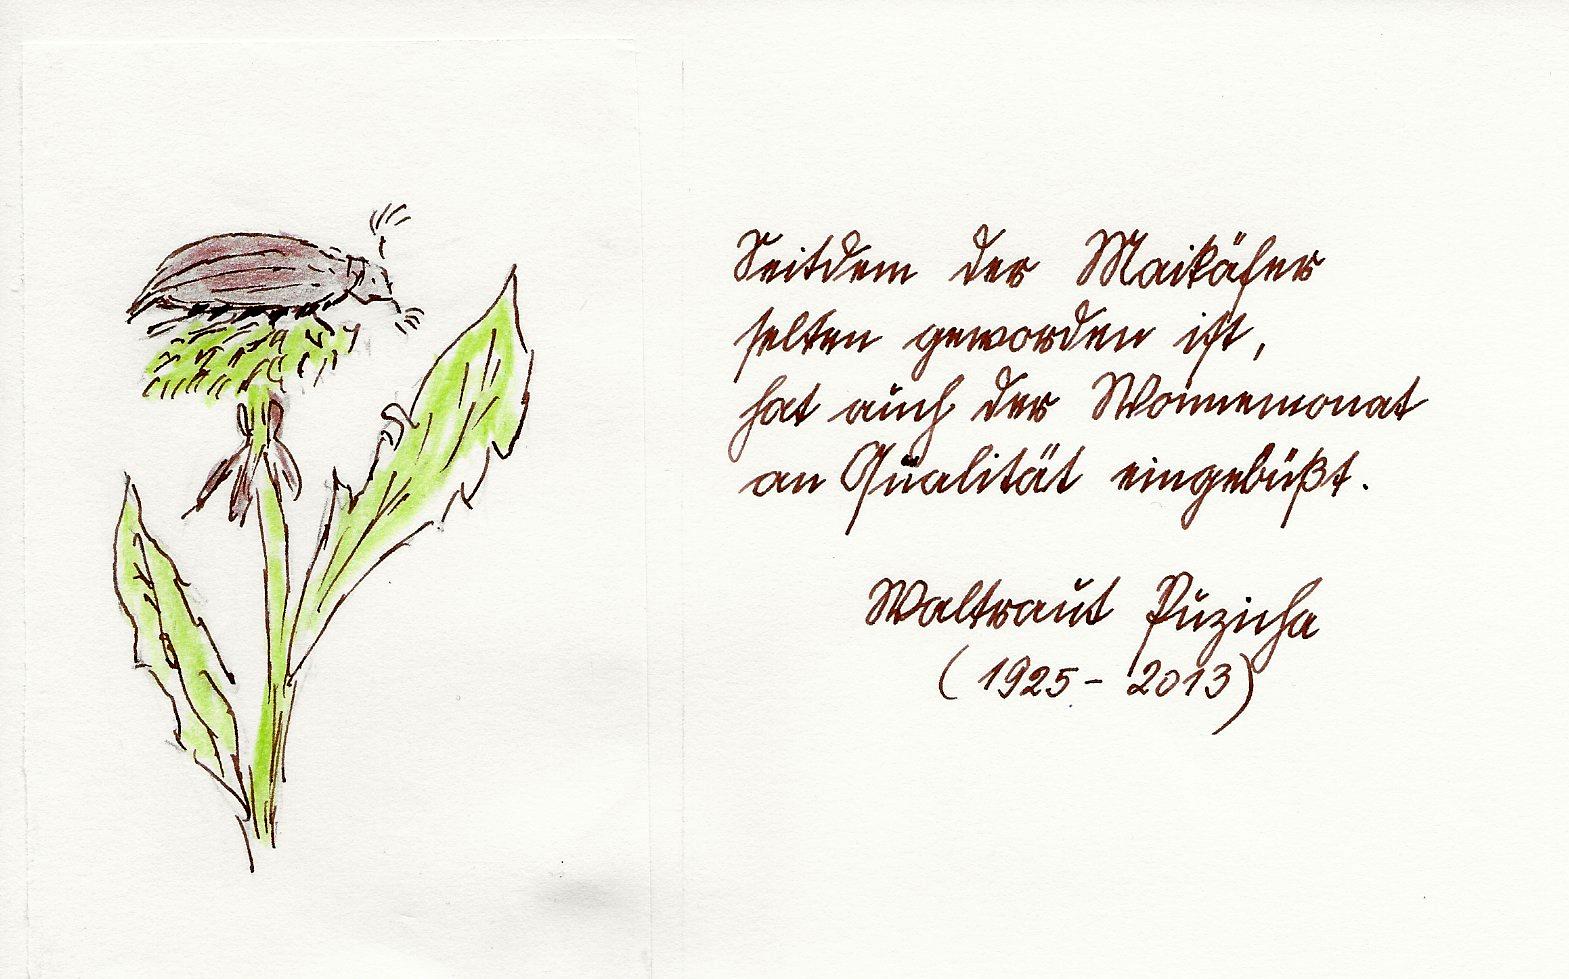 Seitdem der Maikäfer
selten geworden ist,
hat auch der Wonnemonat
an Qualität eingebüßt.
Waltraut Puzicha
(1925 - 2013)